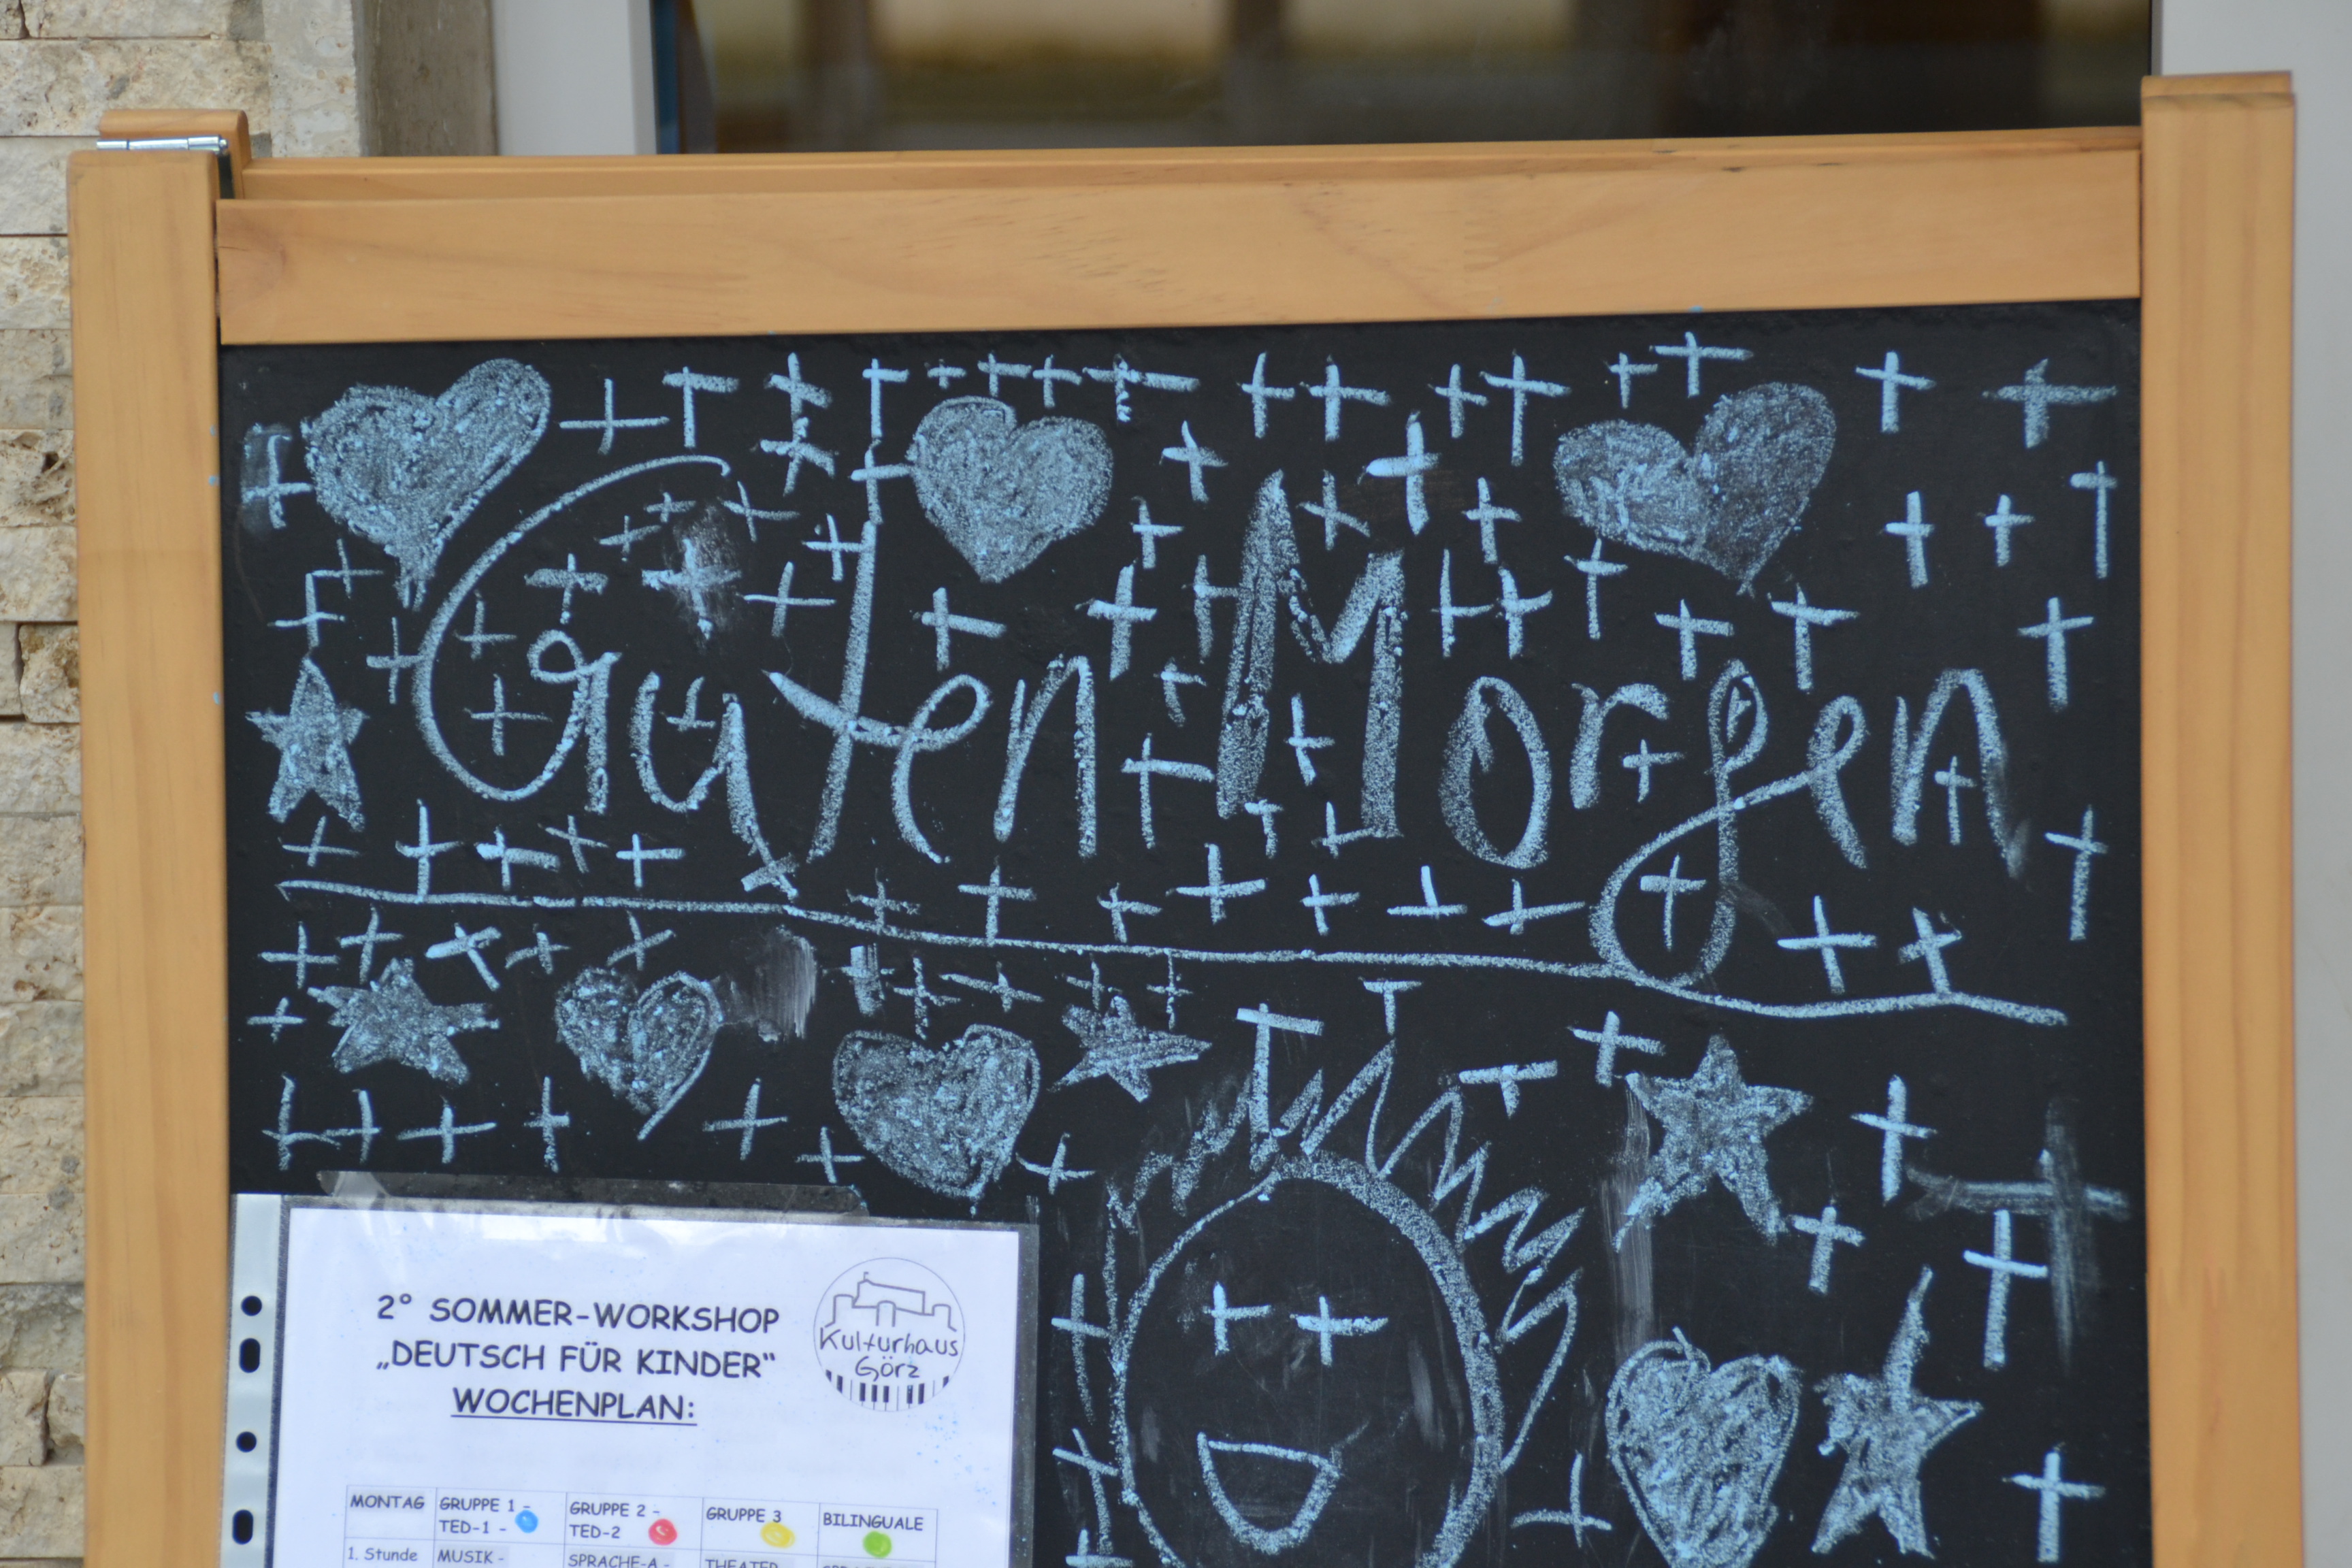 Guten Morgen
2° SOMMER-WORKSHOP
„DEUTSCH FÜR KINDER“
WOCHENPLAN:
Kulturhaus
Görz
MONTAG GRUPPE 1 - TED-1 - GRUPPE 2 - TED-2 GRUPPE 3 BILINGUALE
1. Stunde MUSIK - SPRACHE-A - THEATER